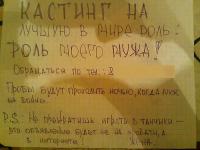 КАСТИНГ НА
ЛУЧШУЮ В МИРЕ РОЛЬ:
РОЛЬ МОЕГО МУЖА!
ОБРАЩАТЬСЯ ПО ТЕЛ.: 8
ПРОБЫ БУДУТ ПРОХОДИТЬ НОЧЬЮ, КОГДА МУЖ
НА ВОЙНЕ.
P.S.: НЕ ПРЕКРАТИШЬ ИГРАТЬ В ТАНЧИКИ -
ЭТО ОБЪЯВЛЕНИЕ БУДЕТ НЕ НА КРОВАТИ, А
В ИНТЕРНЕТЕ! ЖЕНА.